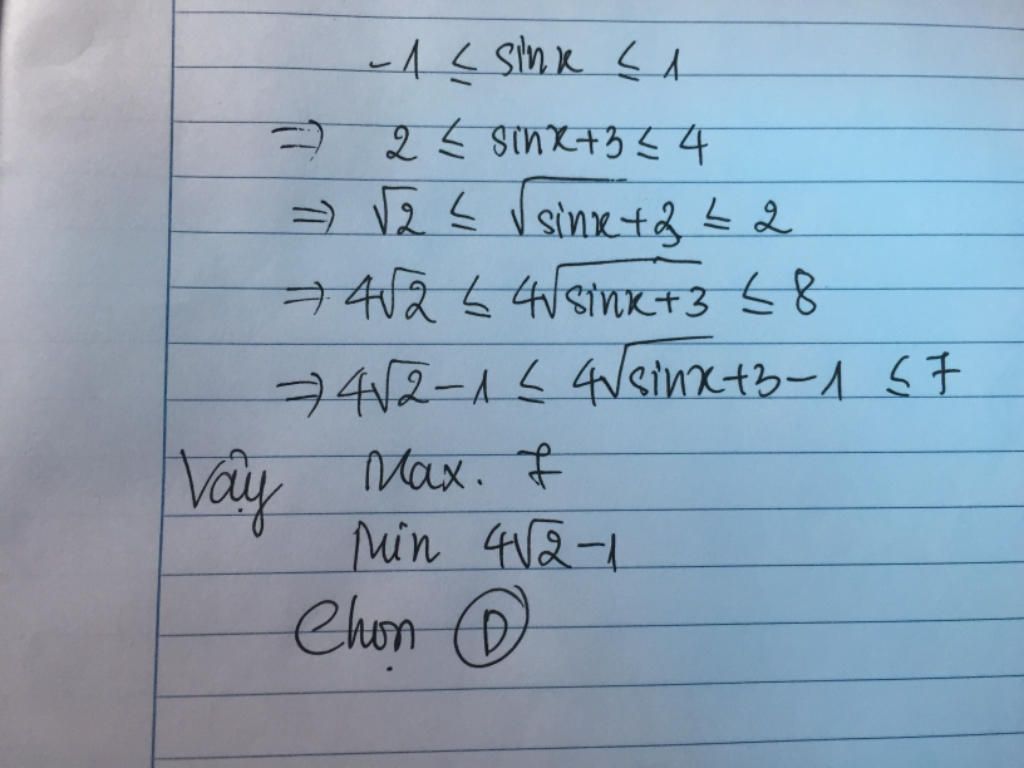 -1 ≤ sinx ≤ 1
⇒ 2 ≤ sinx+3 ≤ 4
⇒ √2 ≤ √sinx+3 ≤ 2
⇒ 4√2 ≤ 4√sinx+3 ≤ 8
⇒ 4√2-1 ≤ 4√sinx+3-1 ≤ 7
Vậy Max. 7
Min 4√2-1
Chọn D